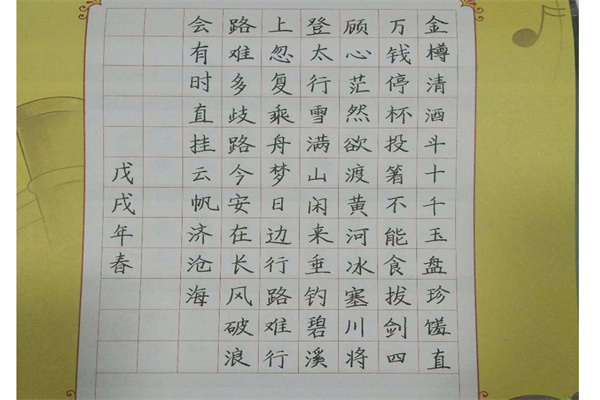 金樽清酒斗十千玉盘珍馐直
万钱停杯投箸不能食拔剑四
顾心茫然欲渡黄河冰塞川将
登太行雪满山闲来垂钓碧溪
上忽复乘舟梦日边行路难行
路难多歧路今安在长风破浪
会有时直挂云帆济沧海
戊戌年春